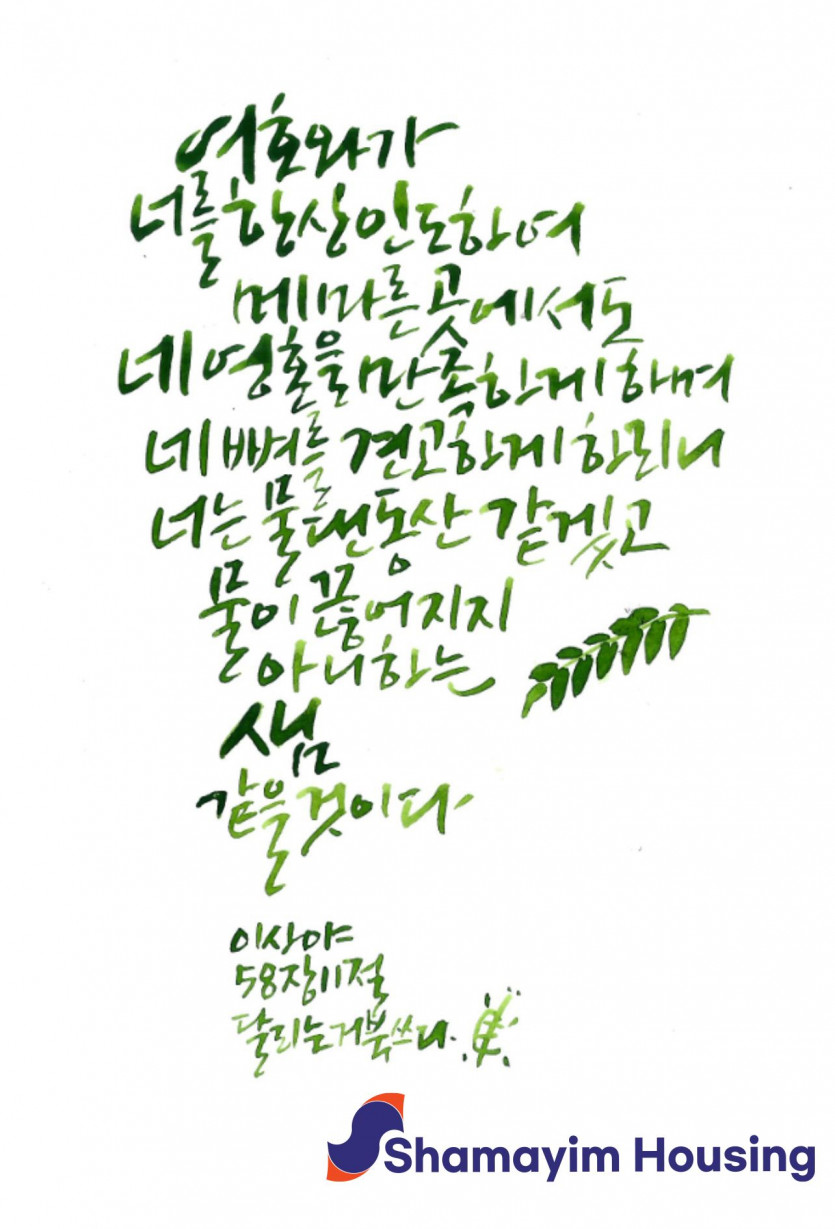 여호와가
너를 항상 인도하여
메마른 곳에서도
네 영혼을 만족하게 하며
네 뼈를 견고하게 하리니
너는 물 댄 동산 같겠고
물이 끊어지지
아니하는
샘
같을 것이다
이사야
58장 11절
달리는 거북 쓰다.
Shamayim Housing